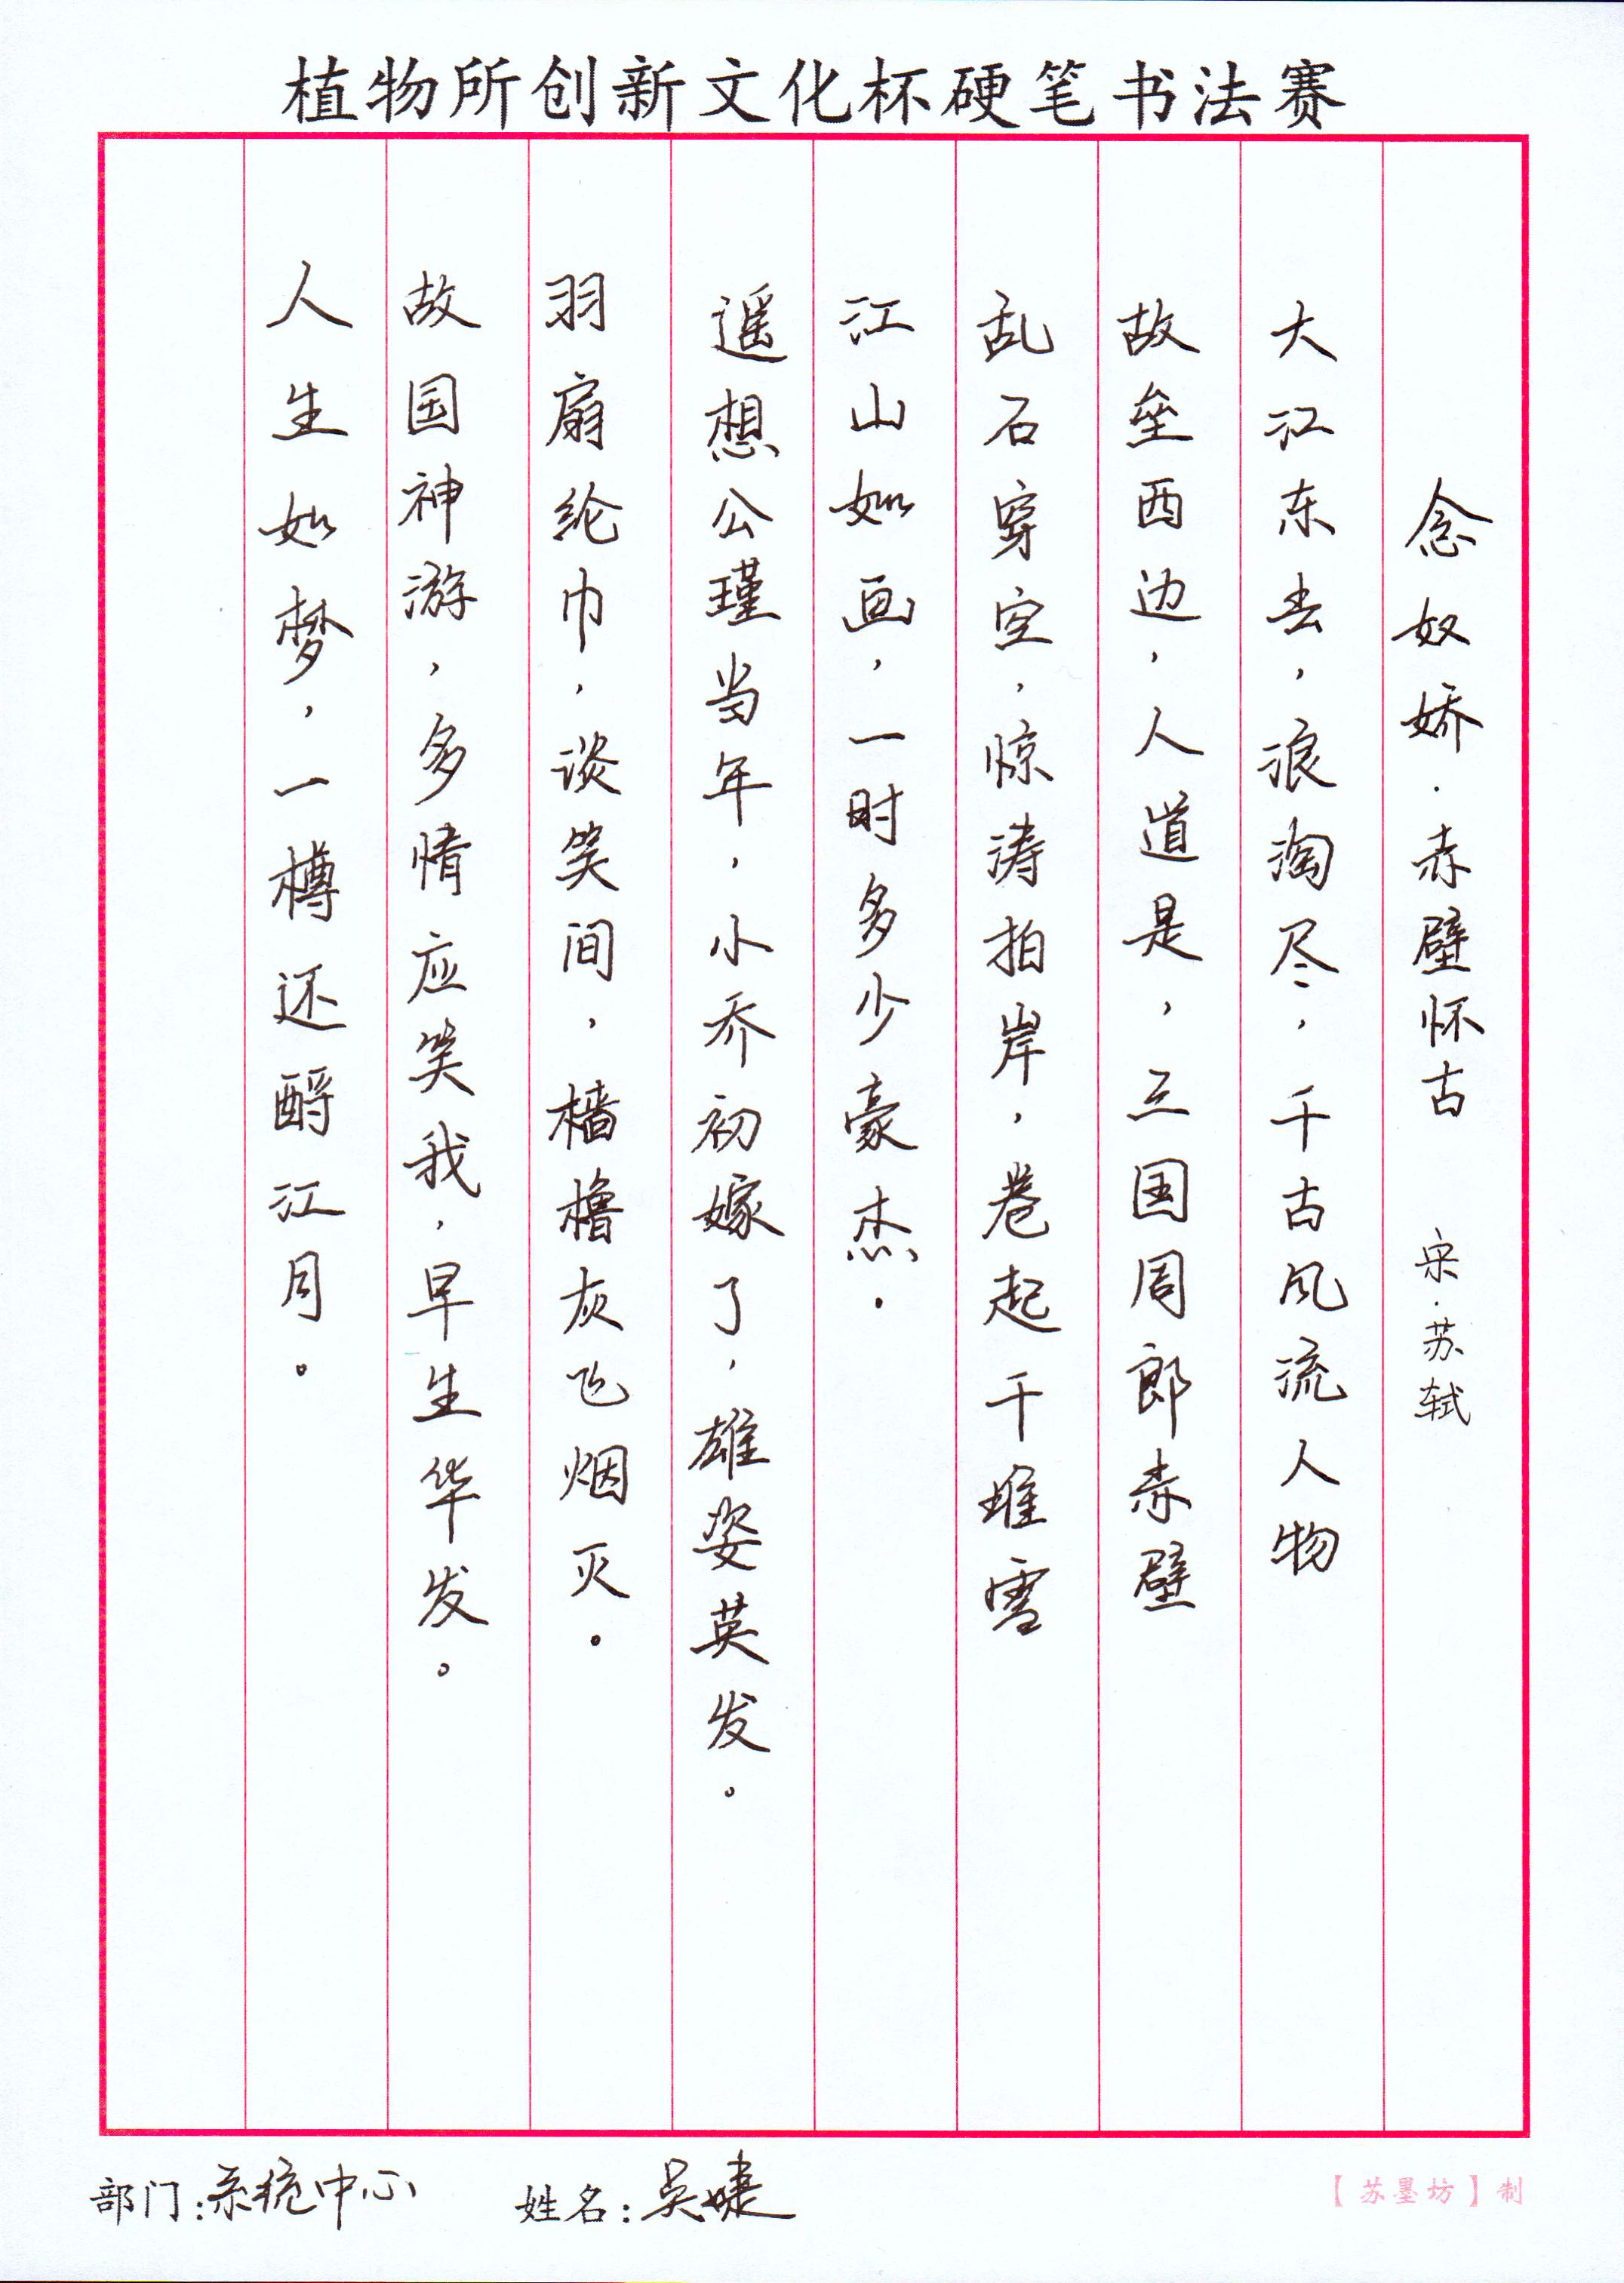 植物所创新文化杯硬笔书法赛
念奴娇·赤壁怀古 宋·苏轼
大江东去,浪淘尽,千古风流人物
故垒西边,人道是,三国周郎赤壁
乱石穿空,惊涛拍岸,卷起千堆雪
江山如画,一时多少豪杰.
遥想公瑾当年,小乔初嫁了,雄姿英发。
羽扇纶巾,谈笑间,樯橹灰飞烟灭.
故国神游,多情应笑我,早生华发。
人生如梦,一樽还酹江月。
部门:系统中心 姓名:吴婕
【苏墨坊】制